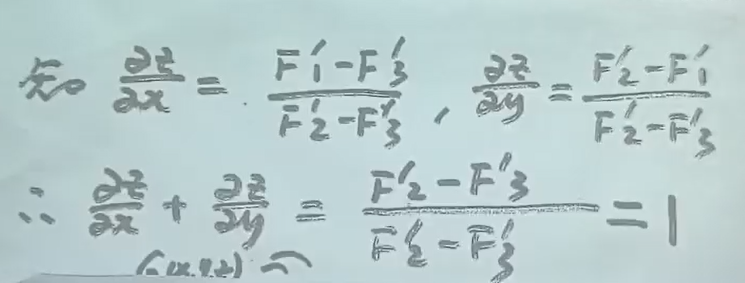 知 ∂z/∂x = (F′₁ - F′₃)/(F′₂ - F′₃), ∂z/∂y = (F′₂ - F′₁)/(F′₂ - F′₃)
∴ ∂z/∂x + ∂z/∂y = (F′₂ - F′₃)/(F′₂ - F′₃) = 1